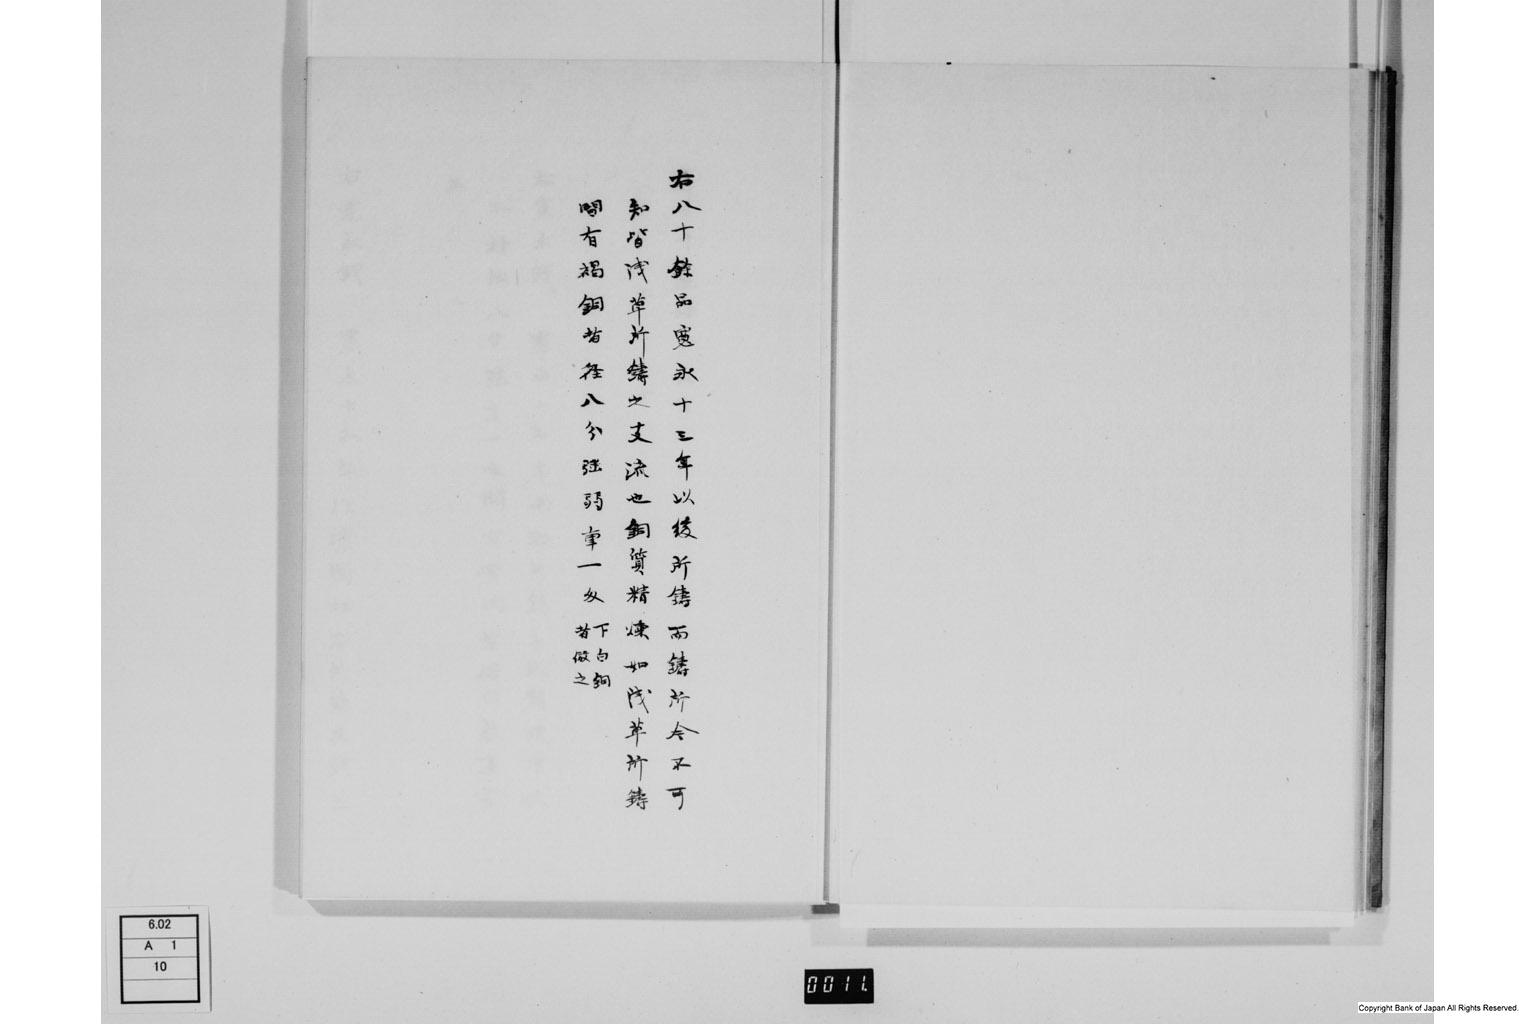 右八十餘品寛永十三年以後所鋳而鋳所今不可
知皆浅草所鋳之支流也銅質精煉如浅草所鋳
間有褐銅者径八分強弱重一匁
下白銅
者倣之
6.02
A 1
10
0011.
Copyright Bank of Japan All Rights Reserved.